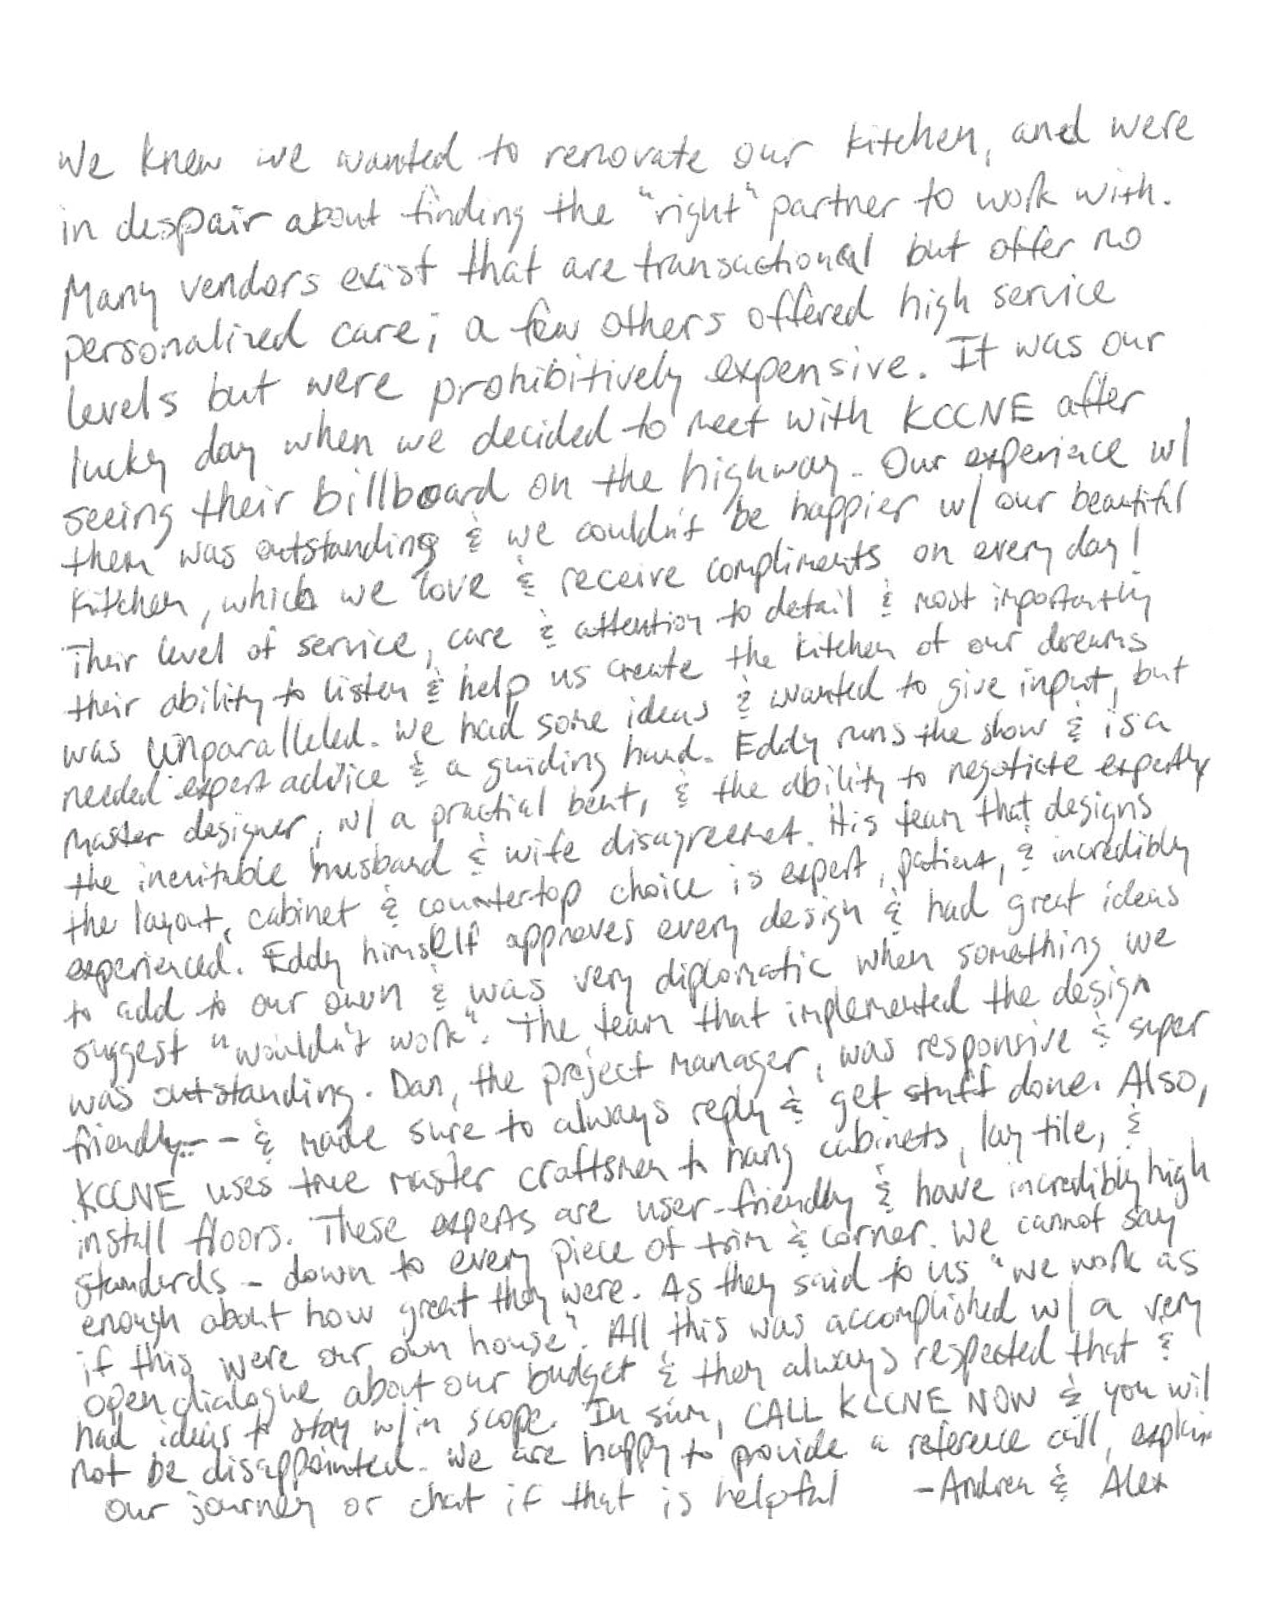 We knew we wanted to renovate our kitchen, and were
in despair about finding the "right" partner to work with.
Many vendors exist that are transactional but offer no
personalized care; a few others offered high service
levels but were prohibitively expensive. It was our
lucky day when we decided to meet with KCCNE after
seeing their billboard on the highway. Our experience w/
them was outstanding & we couldn't be happier w/ our beautiful
kitchen, which we love & receive compliments on every day!
Their level of service, care & attention to detail & most importantly
their ability to listen & help us create the kitchen of our dreams
was unparalleled. We had some ideas & wanted to give input, but
needed expert advice & a guiding hand. Eddy runs the show & is a
master designer, w/ a practial bent, & the ability to negotiate expertly
the inevitable husband & wife disagreement. His team that designs
the layout, cabinet & countertop choice is expert, patient, & incredibly
experienced. Eddy himself approves every design & had great ideas
to add to our own & was very diplomatic when something we
suggest "wouldn't work". The team that implemented the design
was outstanding. Dan, the project manager, was responsive & super
friendly -- & made sure to always reply & get stuff done. Also,
KCCNE uses true master craftsmen to hang cabinets, lay tile, &
install floors. These experts are user-friendly & have incredibly high
standards - down to every piece of trim & corner. We cannot say
enough about how great they were. As they said to us "we work as
if this were our own house". All this was accomplished w/ a very
open dialogue about our budget & they always respected that &
had ideas to stay w/in scope. In sum, CALL KCCNE NOW & you will
not be disappointed. We are happy to provide a reference call, explain
our journey or chat if that is helpful -Andrea & Alex